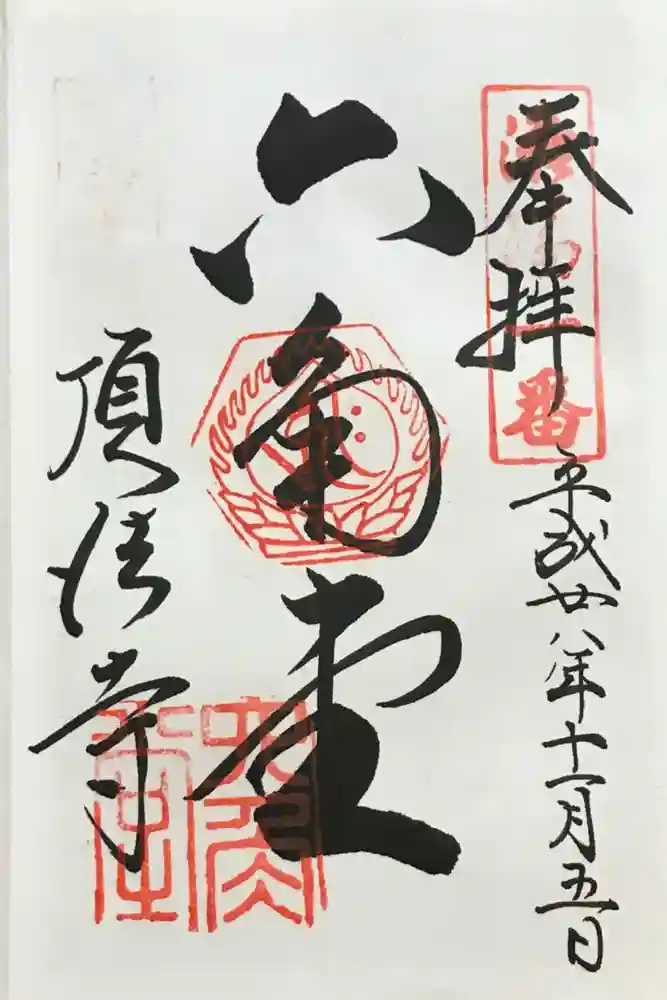 奉拝
平成廿八年十一月五日
六角堂
頂法寺
番